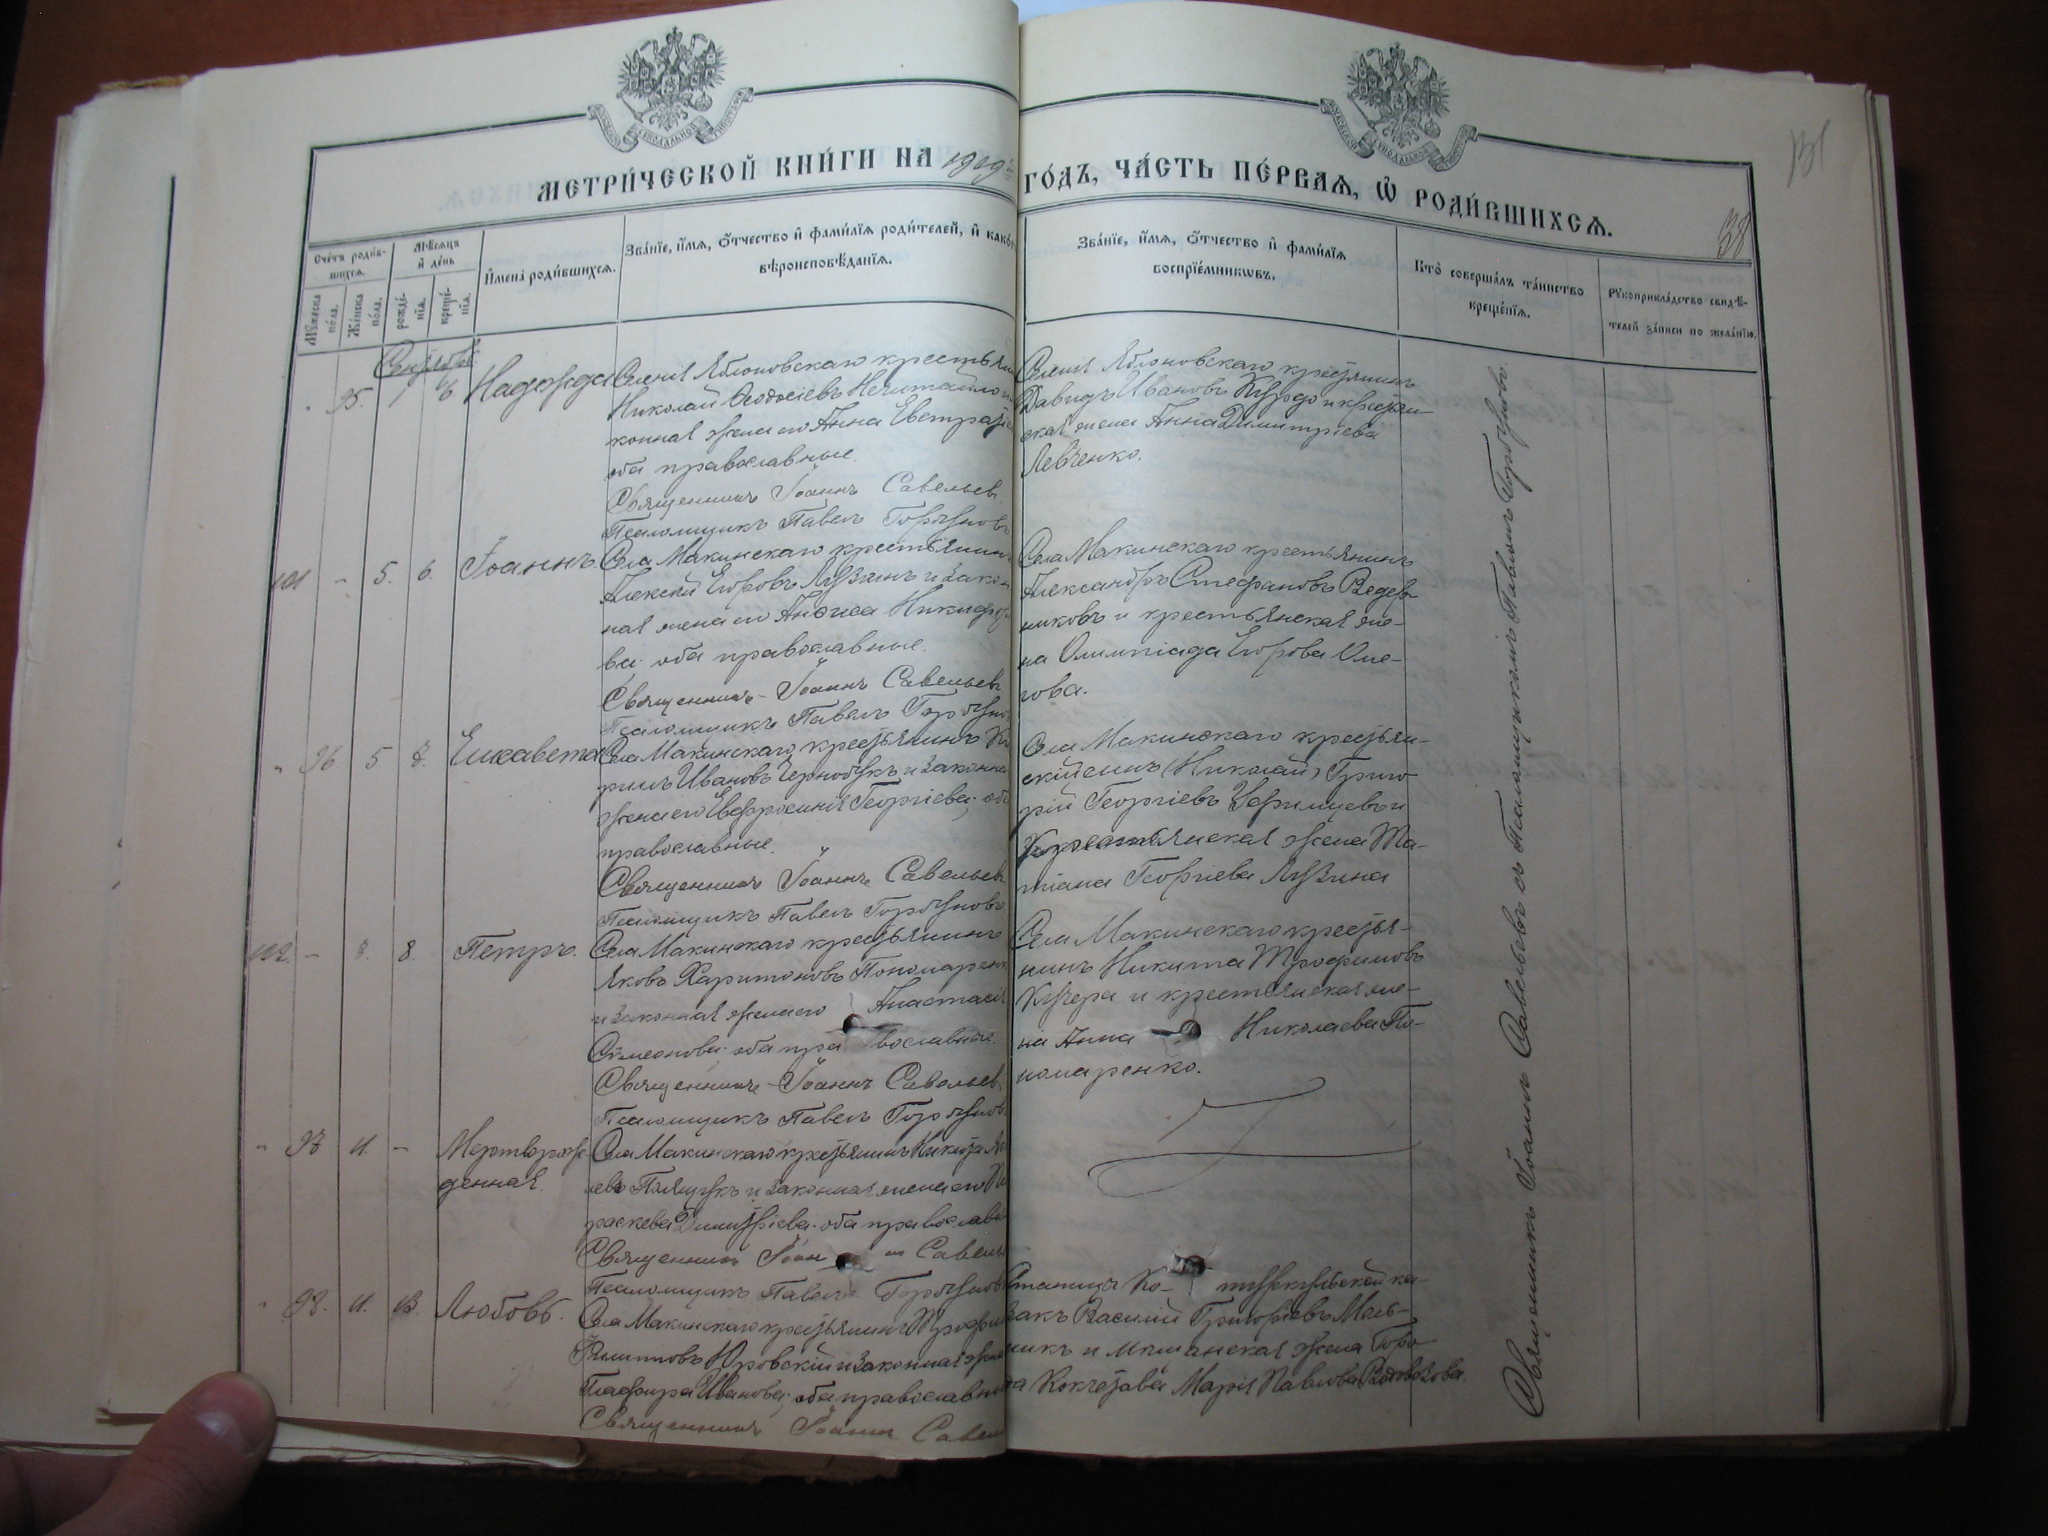 МЕТРИ́ЧЕСКОЙ КНИ́ГИ НА 1909 ГО́ДЪ, ЧА́СТЬ ПЕ́РВАѦ, Ѡ РОДИ́ВШИХСѦ.
38
Сче́тъ роди́в-
шихсѧ.
Мѣ́сѧцъ
и де́нь
Имена̀ роди́вшихсѧ.
Зва́нїе, и́мѧ, ѻ́тчество и фами́лїѧ роди́телей, и како́-
вѣроисповѣ́данїѧ.
Зва́нїе, и́мѧ, ѻ́тчество и фами́лїѧ
воспрїе́мниковъ.
Кто̀ соверша́лъ та́инство
креще́нїѧ.
Рꙋкоприкла́дство свидѣ́-
телей за́писи по жела́нїю.
Мꙋ́жеска
по́ла.
Же́нска
по́ла.
рожде́-
нїѧ.
креще́-
нїѧ.
95. 1 6 Надежда
Селенія Яблоновскаго крестьянин
Николай Ѳеодосіевъ Нечитайло и
конная жена его Анна Евстрафіе
оба православные.
Священникъ Іоаннъ Савельев
Псаломщикъ Павелъ Горбуновъ
Селенія Яблоновскаго крестьянинъ
Давидъ Ивановъ и крестьян-
ская жена Анна Димитріева
Левченко.
101 - 5. 6. Іоаннъ
Села Макинскаго крестьянинъ
Алексѣй Егоровъ Лузинъ и закон
ная жена его Анфиса Никифоро
ва оба православные.
Священникъ Іоаннъ Савельевъ
Псаломщикъ Павелъ Горбунов
Села Макинскаго крестьянинъ
Александръ Стефановъ Ведер-
никовъ и крестьянская же-
на Олимпіада Егорова
" 96 5 7. Елисавета
Села Макинскаго крестьянинъ Ки
рилъ Ивановъ Чернобукъ и законная
жена его Евфросинія Георгіева; оба
православные.
Священникъ Іоаннъ Савельевъ
Псаломщикъ Павелъ Горбуновъ
Села Макинскаго крестьян-
скій сынъ (Николай) Григо
рій Георгіевъ и
крестьянская жена Та-
тіана Георгіева Лузина
102. - 8. 8. Петръ.
Села Макинскаго крестьянинъ
Яковъ Харитоновъ Пономарен
и законная жена его Анастасія
Симеонова; оба православные.
Священникъ Іоаннъ Савельев
Псаломщикъ Павелъ Горбунов
Села Макинскаго крестья-
нинъ Никита Трофимовъ
Кучера и крестьянская же-
на Анна Николаева По-
номаренко.
" 97 11. - Мертворож-
денная.
Села Макинскаго крестьянинъ Никита
Полящукъ и законная жена его Па
раскева Димитріева. оба православ
Священникъ Іоаннъ Савель
Псаломщикъ Павелъ Горбунов
" 98. 11. 13. Любовь.
Села Макинскаго крестьянинъ Трофи
Филипповъ Юровскій и законная жена
Глафира Иванова; оба православны
Священникъ Іоаннъ Савел
Станицы Ко- ка-
закъ Василій Григорьевъ Мель-
никъ и мѣщанская жена горо
да Кокчетава Марія Павлова Водовозова.
Священникъ Іоаннъ Савельевъ съ Псаломщикомъ Павломъ Горбуновъ.